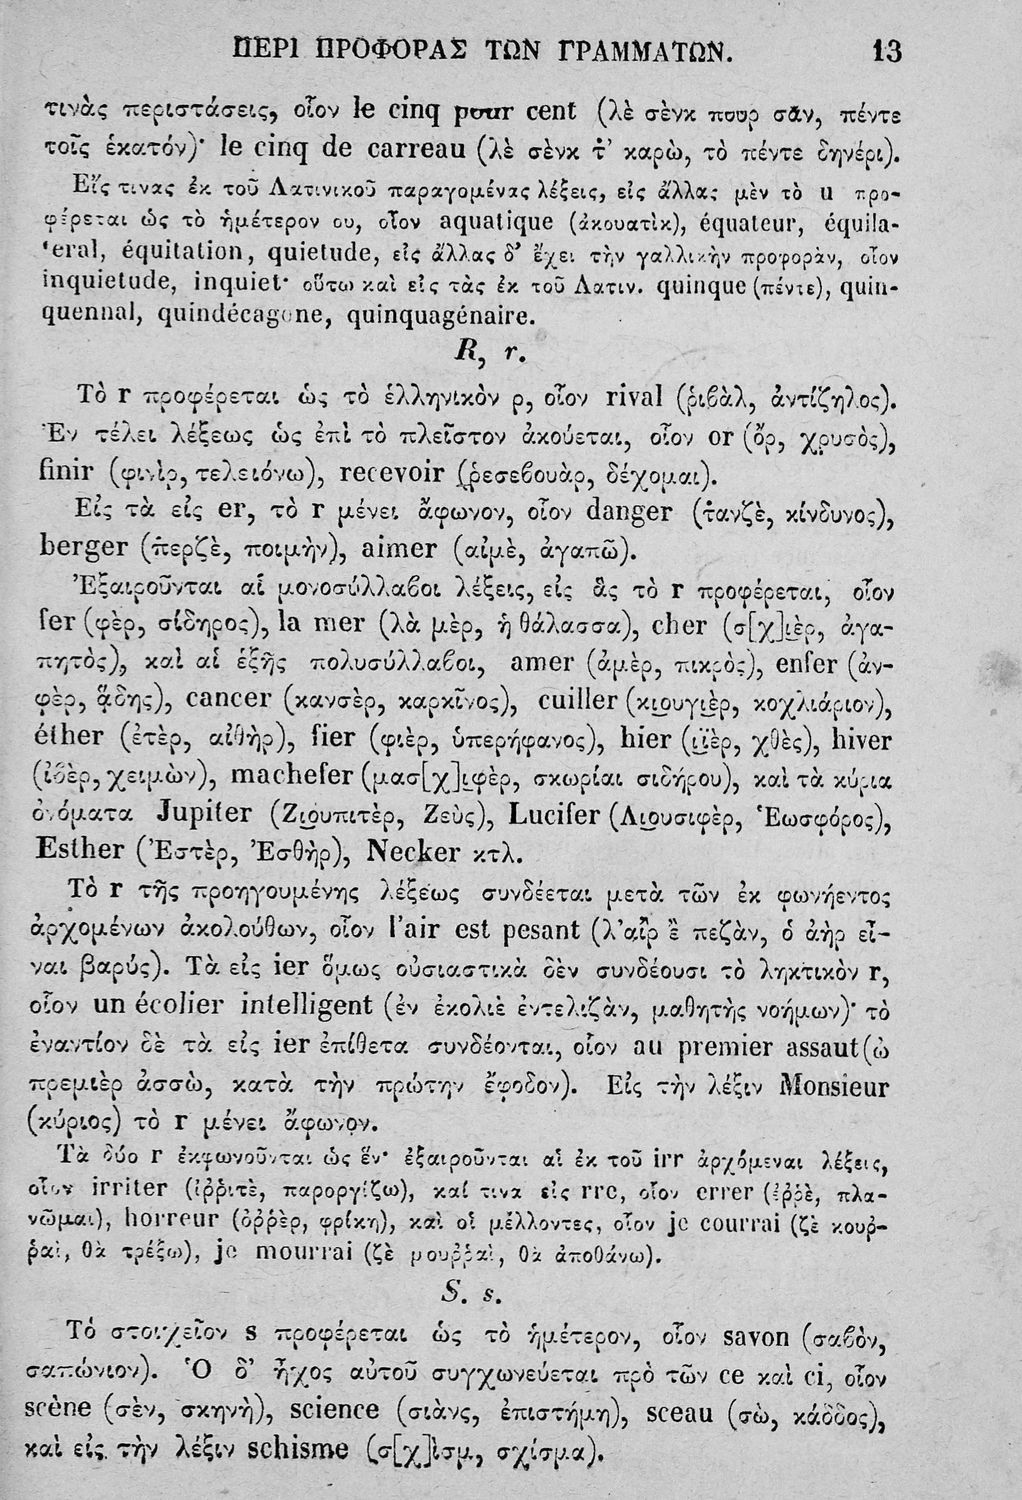 ΠΕΡΙ ΠΡΟΦΟΡΑΣ ΤΩΝ ΓΡΑΜΜΑΤΩΝ. 13
τινὰς περιστάσεις, οἷον le cinq pour cent (λὲ σὲνκ πουρ σᾶν, πέντε
τοῖς ἑκατόν)· le cinq de carreau (λὲ σὲνκ τ̇’ καρὼ, τὸ πέντε δηνέρι).
Εἴς τινας ἐκ τοῦ Λατινικοῦ παραγομένας λέξεις, εἰς ἄλλας μὲν τὸ u προ-
φέρεται ὡς τὸ ἡμέτερον ου, οἷον aquatique (ἀκουατὶκ), équateur, équila-
teral, équitation, quietude, εἰς ἄλλας δ’ ἔχει τὴν γαλλικὴν προφορὰν, οἷον
inquietude, inquiet· οὕτω καὶ εἰς τὰς ἐκ τοῦ Λατιν. quinque (πέντε), quin-
quennal, quindécagone, quinquagénaire.
R, r.
Τὸ r προφέρεται ὡς τὸ ἑλληνικὸν ρ, οἷον rival (ῥιβὰλ, ἀντίζηλος).
Ἐν τέλει λέξεως ὡς ἐπὶ τὸ πλεῖστον ἀκούεται, οἷον or (ὄρ, χρυσὸς),
finir (φινὶρ, τελειόνω), recevoir (ῥεσεβουὰρ, δέχομαι).
Εἰς τὰ εἰς er, τὸ r μένει ἄφωνον, οἷον danger (τ̇ανζὲ, κίνδυνος),
berger (π̇ερζὲ, ποιμὴν), aimer (αἰμὲ, ἀγαπῶ).
Ἐξαιροῦνται αἱ μονοσύλλαβοι λέξεις, εἰς ἃς τὸ r προφέρεται, οἷον
fer (φὲρ, σίδηρος), la mer (λὰ μὲρ, ἡ θάλασσα), cher (σ[χ]ι̱ὲρ, ἀγα-
πητὸς), καὶ αἱ ἑξῆς πολυσύλλαβοι, amer (ἀμὲρ, πικρὸς), enfer (ἀν-
φὲρ, ᾅδης), cancer (κανσὲρ, καρκῖνος), cuiller (κι̱ουγι̱ὲρ, κοχλιάριον),
éther (ἐτὲρ, αἰθὴρ), fier (φιὲρ, ὑπερήφανος), hier (ι̱ἲὲρ, χθὲς), hiver
(ἰβὲρ, χειμὼν), machefer (μασ[χ]ι̱φὲρ, σκωρίαι σιδήρου), καὶ τὰ κύρια
ὀνόματα Jupiter (Ζι̱ουπιτὲρ, Ζεὺς), Lucifer (Λι̱ουσιφὲρ, Ἑωσφόρος),
Esther (Ἐστὲρ, Ἐσθὴρ), Necker κτλ.
Τὸ r τῆς προηγουμένης λέξεως συνδέεται μετὰ τῶν ἐκ φωνήεντος
ἀρχομένων ἀκολούθων, οἷον l’air est pesant (λ’αἲρ ἒ πεζὰν, ὁ ἀὴρ εἶ-
ναι βαρύς). Τὰ εἰς ier ὅμως οὐσιαστικὰ δὲν συνδέουσι τὸ ληκτικὸν r,
οἷον un écolier intelligent (ἐν ἐκολιὲ ἐντελιζὰν, μαθητὴς νοήμων)· τὸ
ἐναντίον δὲ τὰ εἰς ier ἐπίθετα συνδέονται, οἷον au premier assaut (ὠ
πρεμιὲρ ἀσσὼ, κατὰ τὴν πρώτην ἔφοδον). Εἰς τὴν λέξιν Monsieur
(κύριος) τὸ r μένει ἄφωνον.
Τὰ δύο r ἐκφωνοῦνται ὡς ἕν· ἐξαιροῦνται αἱ ἐκ τοῦ irr ἀρχόμεναι λέξεις,
οἷον irriter (ἰῤῥιτὲ, παροργίζω), καί τινα εἰς rre, οἷον errer (ἐῤῥὲ, πλα-
νῶμαι), horreur (ὀῤῥὲρ, φρίκη), καὶ οἱ μέλλοντες, οἷον je courrai (ζὲ κουῤ-
ῥαὶ, θὰ τρέξω), je mourrai (ζὲ μουῤῥαὶ, θὰ ἀποθάνω).
S. s.
Τὸ στοιχεῖον s προφέρεται ὡς τὸ ἡμέτερον, οἷον savon (σαβὸν,
σαπώνιον). Ὁ δ’ ἦχος αὐτοῦ συγχωνεύεται πρὸ τῶν ce καὶ ci, οἷον
scène (σὲν, σκηνὴ), science (σιὰνς, ἐπιστήμη), sceau (σὼ, κάδδος),
καὶ εἰς τὴν λέξιν schisme (σ[χ]ὶσμ, σχίσμα).